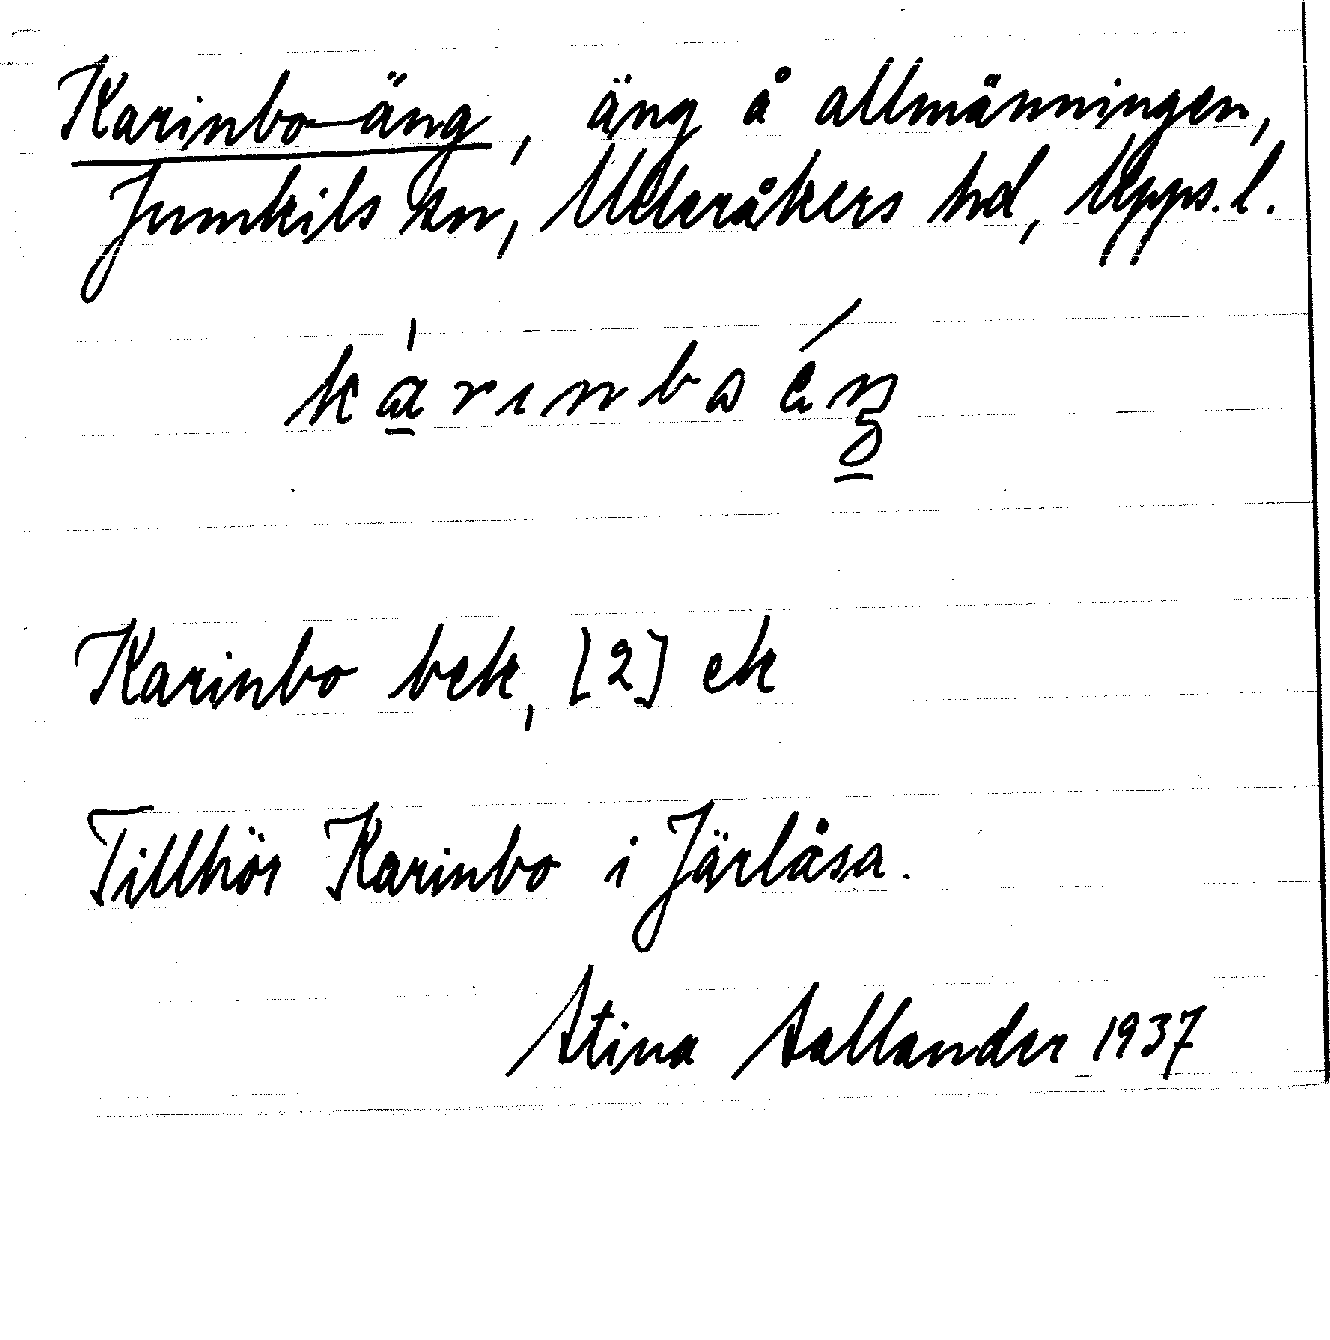 Karinbo-äng, äng å allmänningen,
Jumkils sn, Ulleråkers hd, Upps. l.
Karinbo bek, [2] ek
Tillhör Karinbo i Järlåsa.
Stina Sallander 1937